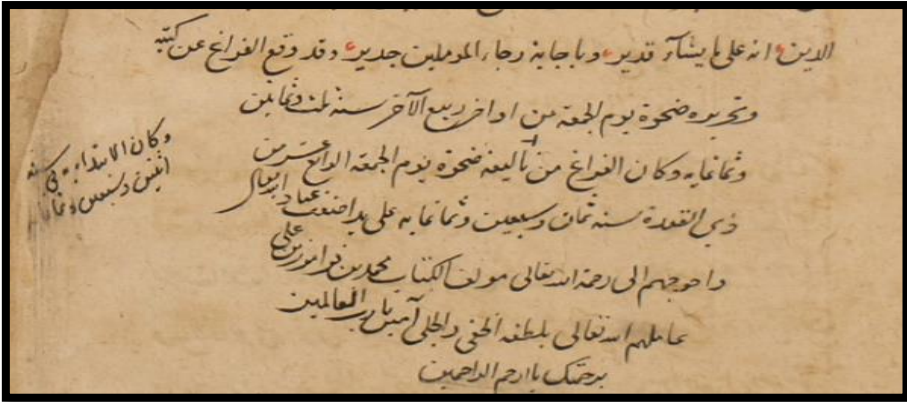 الدين انه على ما يشآء قدير وباجابة رجاء المؤملين جدير وقد وقع الفراغ عن كتبه
وتحريره ضحوة يوم الجمعة من اواخر ربيع الآخر سنة ثلث وثمانين
وثمانمايه وكان الفراغ من تأليفه ضحوة يوم الجمعة الرابع عشر من
ذي القعدة سنة ثمان وسبعين وثمانمايه على يد اضعف عباد الله تعالى
واحوجهم الى رحمة الله تعالى مؤلف الكتاب محمد بن فرامرز بن على
عاملهم الله تعالى بلطفه الخفي والجلي آمين يا رب العالمين
برحمتك يا ارحم الراحمين
وكان الابتداء به في سنة
اثنين وسبعين وثمانمايه